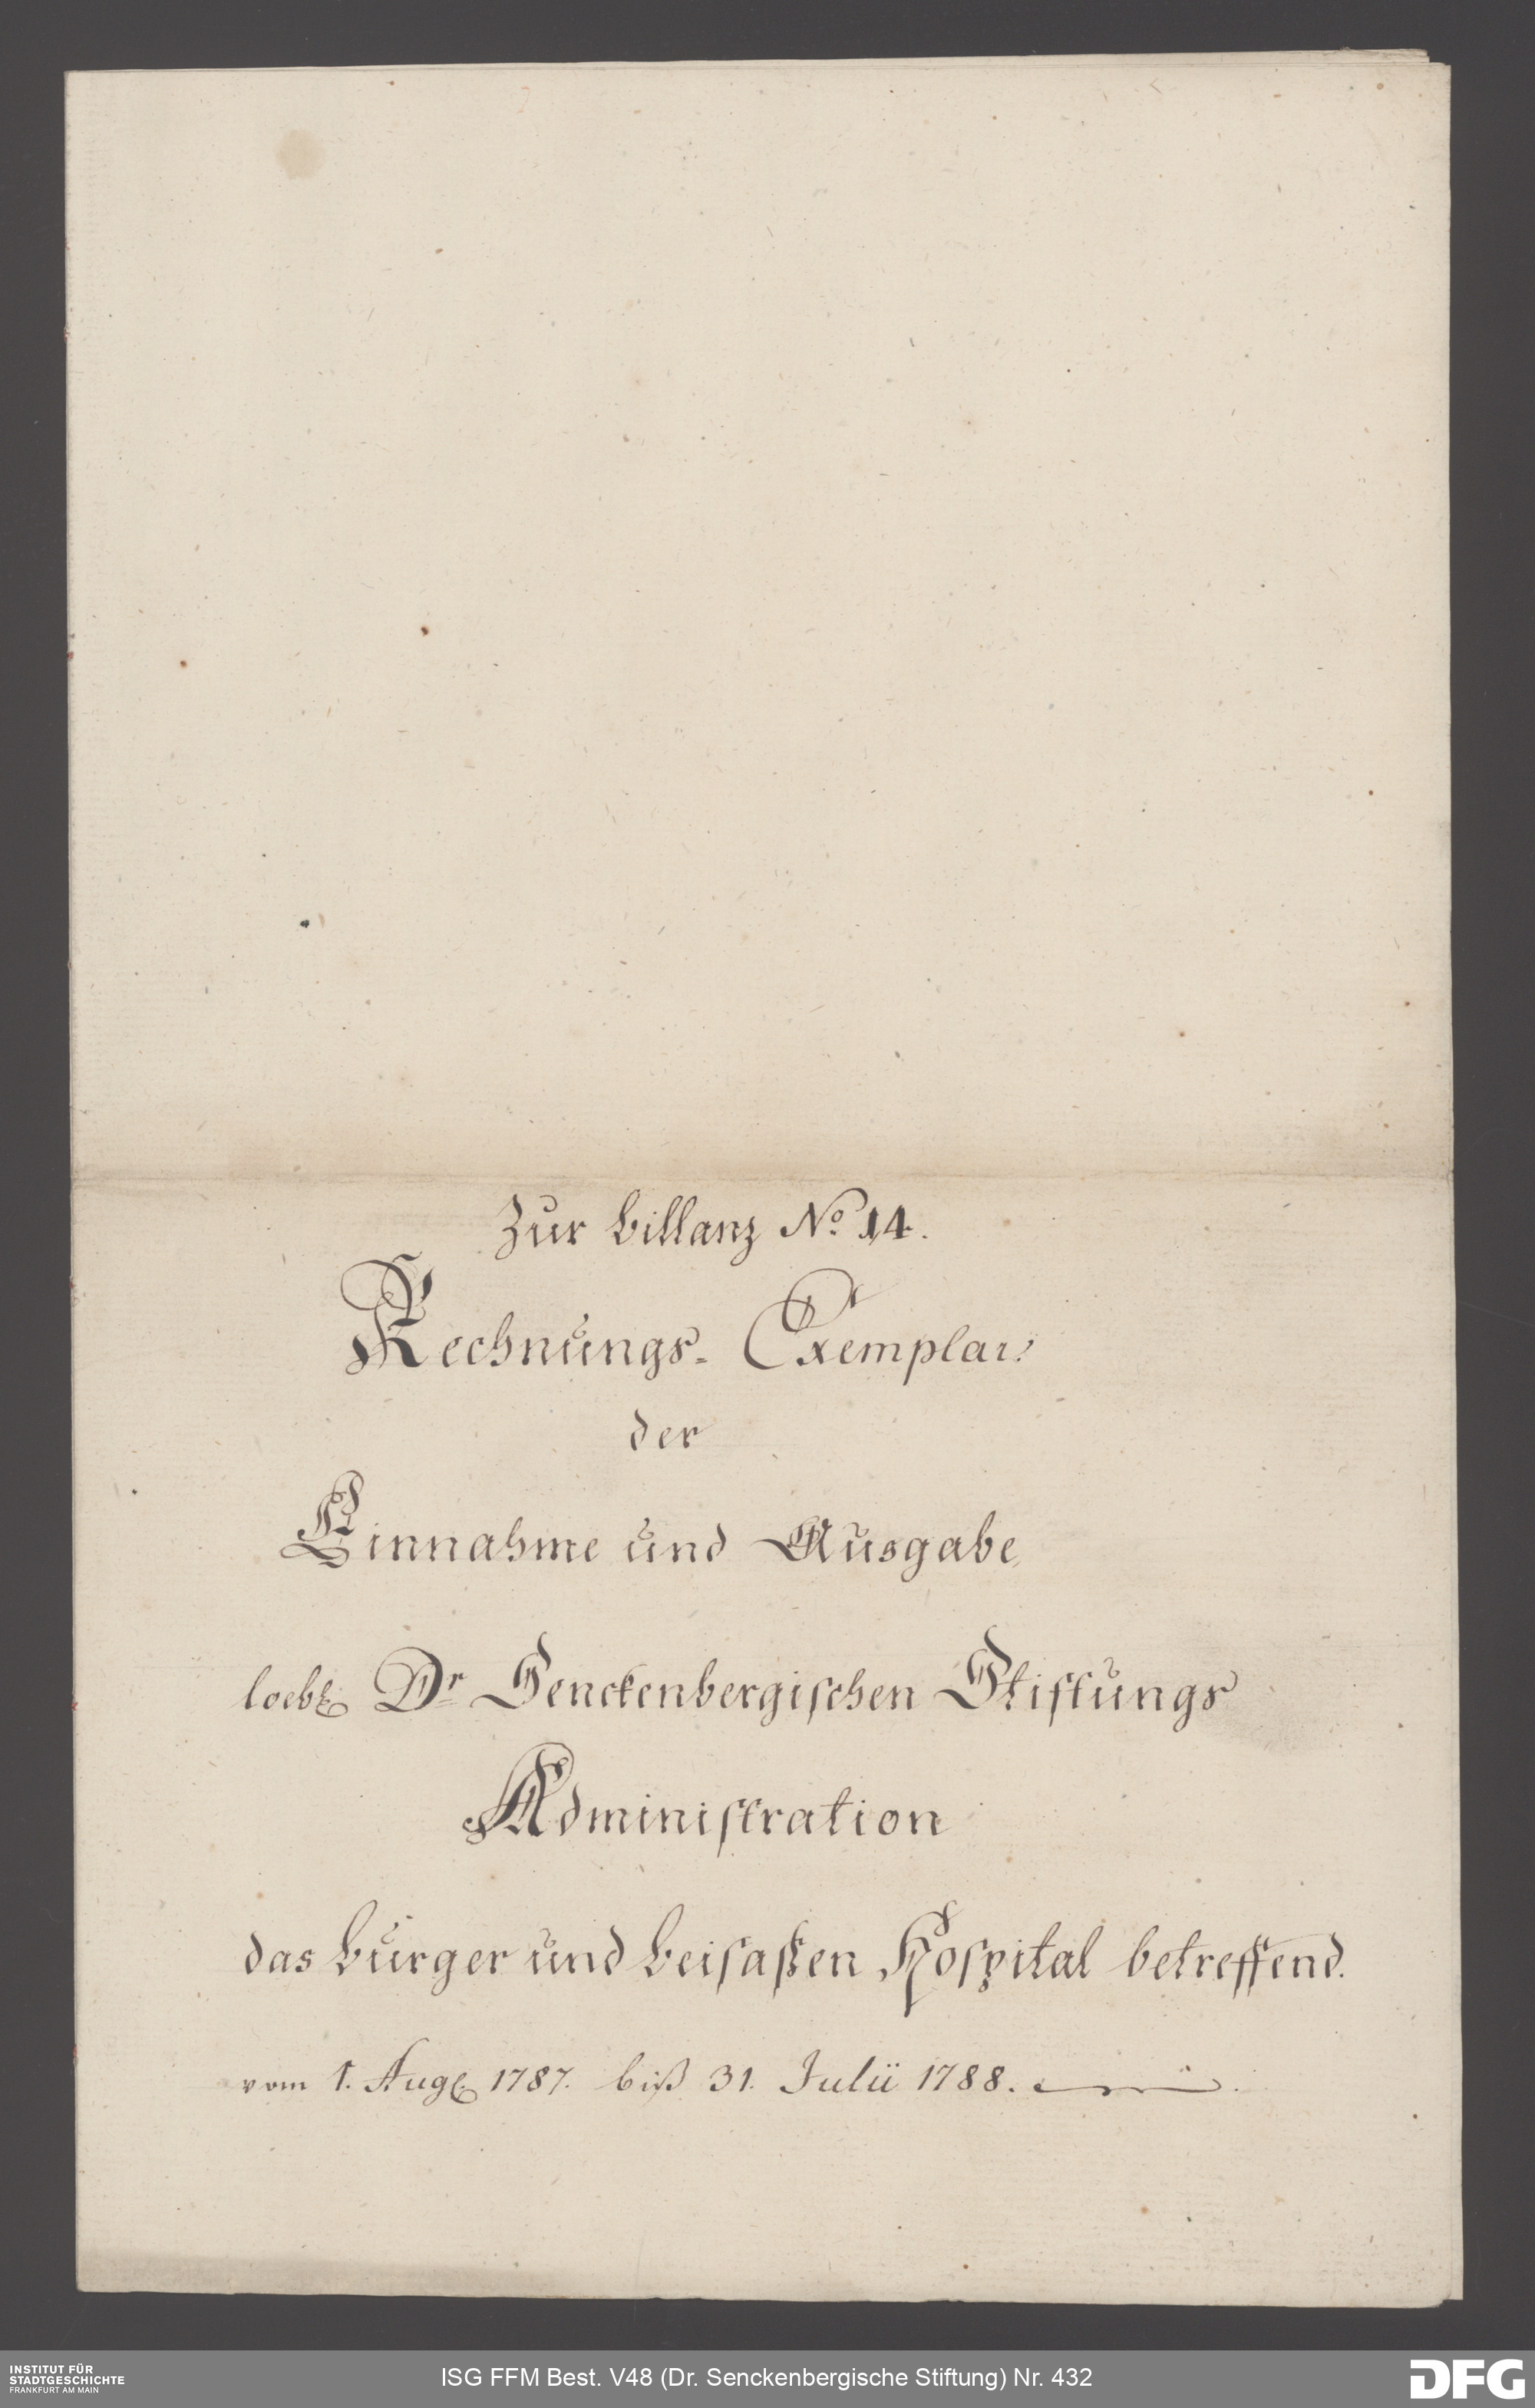 Zur Billanz No. 14.
Rechnungs- Exemplar
der
Einnahme und Ausgabe
loebl. Dr. Senckenbergischen Stiftungs
Administration
das Burger und Beisaßen Hospital betreffend.
vom 1. Aug. 1787. biß 31. Julii 1788.
INSTITUT FÜR
STADTGESCHICHTE
FRANKFURT AM MAIN
ISG FFM Best. V48 (Dr. Senckenbergische Stiftung) Nr. 432
DFG